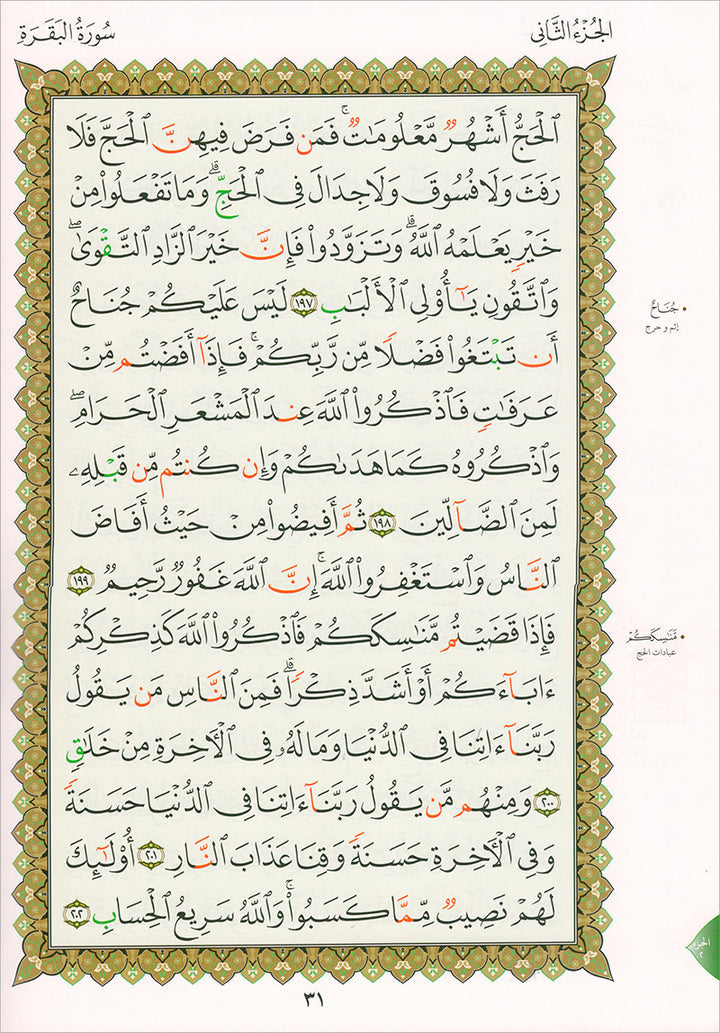 الجُزْءُ الثَّانِى
سُورَةُ البَقَرَةِ
ٱلْحَجُّ أَشْهُرٌ مَّعْلُومَـٰتٌ ۚ فَمَن فَرَضَ فِيهِنَّ ٱلْحَجَّ فَلَا
رَفَثَ وَلَا فُسُوقَ وَلَا جِدَالَ فِى ٱلْحَجِّ ۗ وَمَا تَفْعَلُوا۟ مِنْ
خَيْرٍ يَعْلَمْهُ ٱللَّهُ ۗ وَتَزَوَّدُوا۟ فَإِنَّ خَيْرَ ٱلزَّادِ ٱلتَّقْوَىٰ ۖ
وَٱتَّقُونِ يَـٰٓأُو۟لِى ٱلْأَلْبَـٰبِ ١٩٧ لَيْسَ عَلَيْكُمْ جُنَاحٌ
أَن تَبْتَغُوا۟ فَضْلًا مِّن رَّبِّكُمْ ۚ فَإِذَآ أَفَضْتُم مِّنْ
عَرَفَـٰتٍ فَٱذْكُرُوا۟ ٱللَّهَ عِندَ ٱلْمَشْعَرِ ٱلْحَرَامِ ۖ
وَٱذْكُرُوهُ كَمَا هَدَىٰكُمْ وَإِن كُنتُم مِّن قَبْلِهِۦ
لَمِنَ ٱلضَّآلِّينَ ١٩٨ ثُمَّ أَفِيضُوا۟ مِنْ حَيْثُ أَفَاضَ
ٱلنَّاسُ وَٱسْتَغْفِرُوا۟ ٱللَّهَ ۚ إِنَّ ٱللَّهَ غَفُورٌ رَّحِيمٌ ١٩٩
فَإِذَا قَضَيْتُم مَّنَـٰسِكَكُمْ فَٱذْكُرُوا۟ ٱللَّهَ كَذِكْرِكُمْ
ءَابَآءَكُمْ أَوْ أَشَدَّ ذِكْرًا ۗ فَمِنَ ٱلنَّاسِ مَن يَقُولُ
رَبَّنَآ ءَاتِنَا فِى ٱلدُّنْيَا وَمَا لَهُۥ فِى ٱلْـَٔاخِرَةِ مِنْ خَلَـٰقٍ
٢٠٠ وَمِنْهُم مَّن يَقُولُ رَبَّنَآ ءَاتِنَا فِى ٱلدُّنْيَا حَسَنَةً
وَفِى ٱلْـَٔاخِرَةِ حَسَنَةً وَقِنَا عَذَابَ ٱلنَّارِ ٢٠١ أُو۟لَـٰٓئِكَ
لَهُمْ نَصِيبٌ مِّمَّا كَسَبُوا۟ ۚ وَٱللَّهُ سَرِيعُ ٱلْحِسَابِ ٢٠٢
• جُنَاحٌ
إثم و حرج
• مَّنَـٰسِكَكُمْ
عبادات الحج
الجزء
٢
٣١